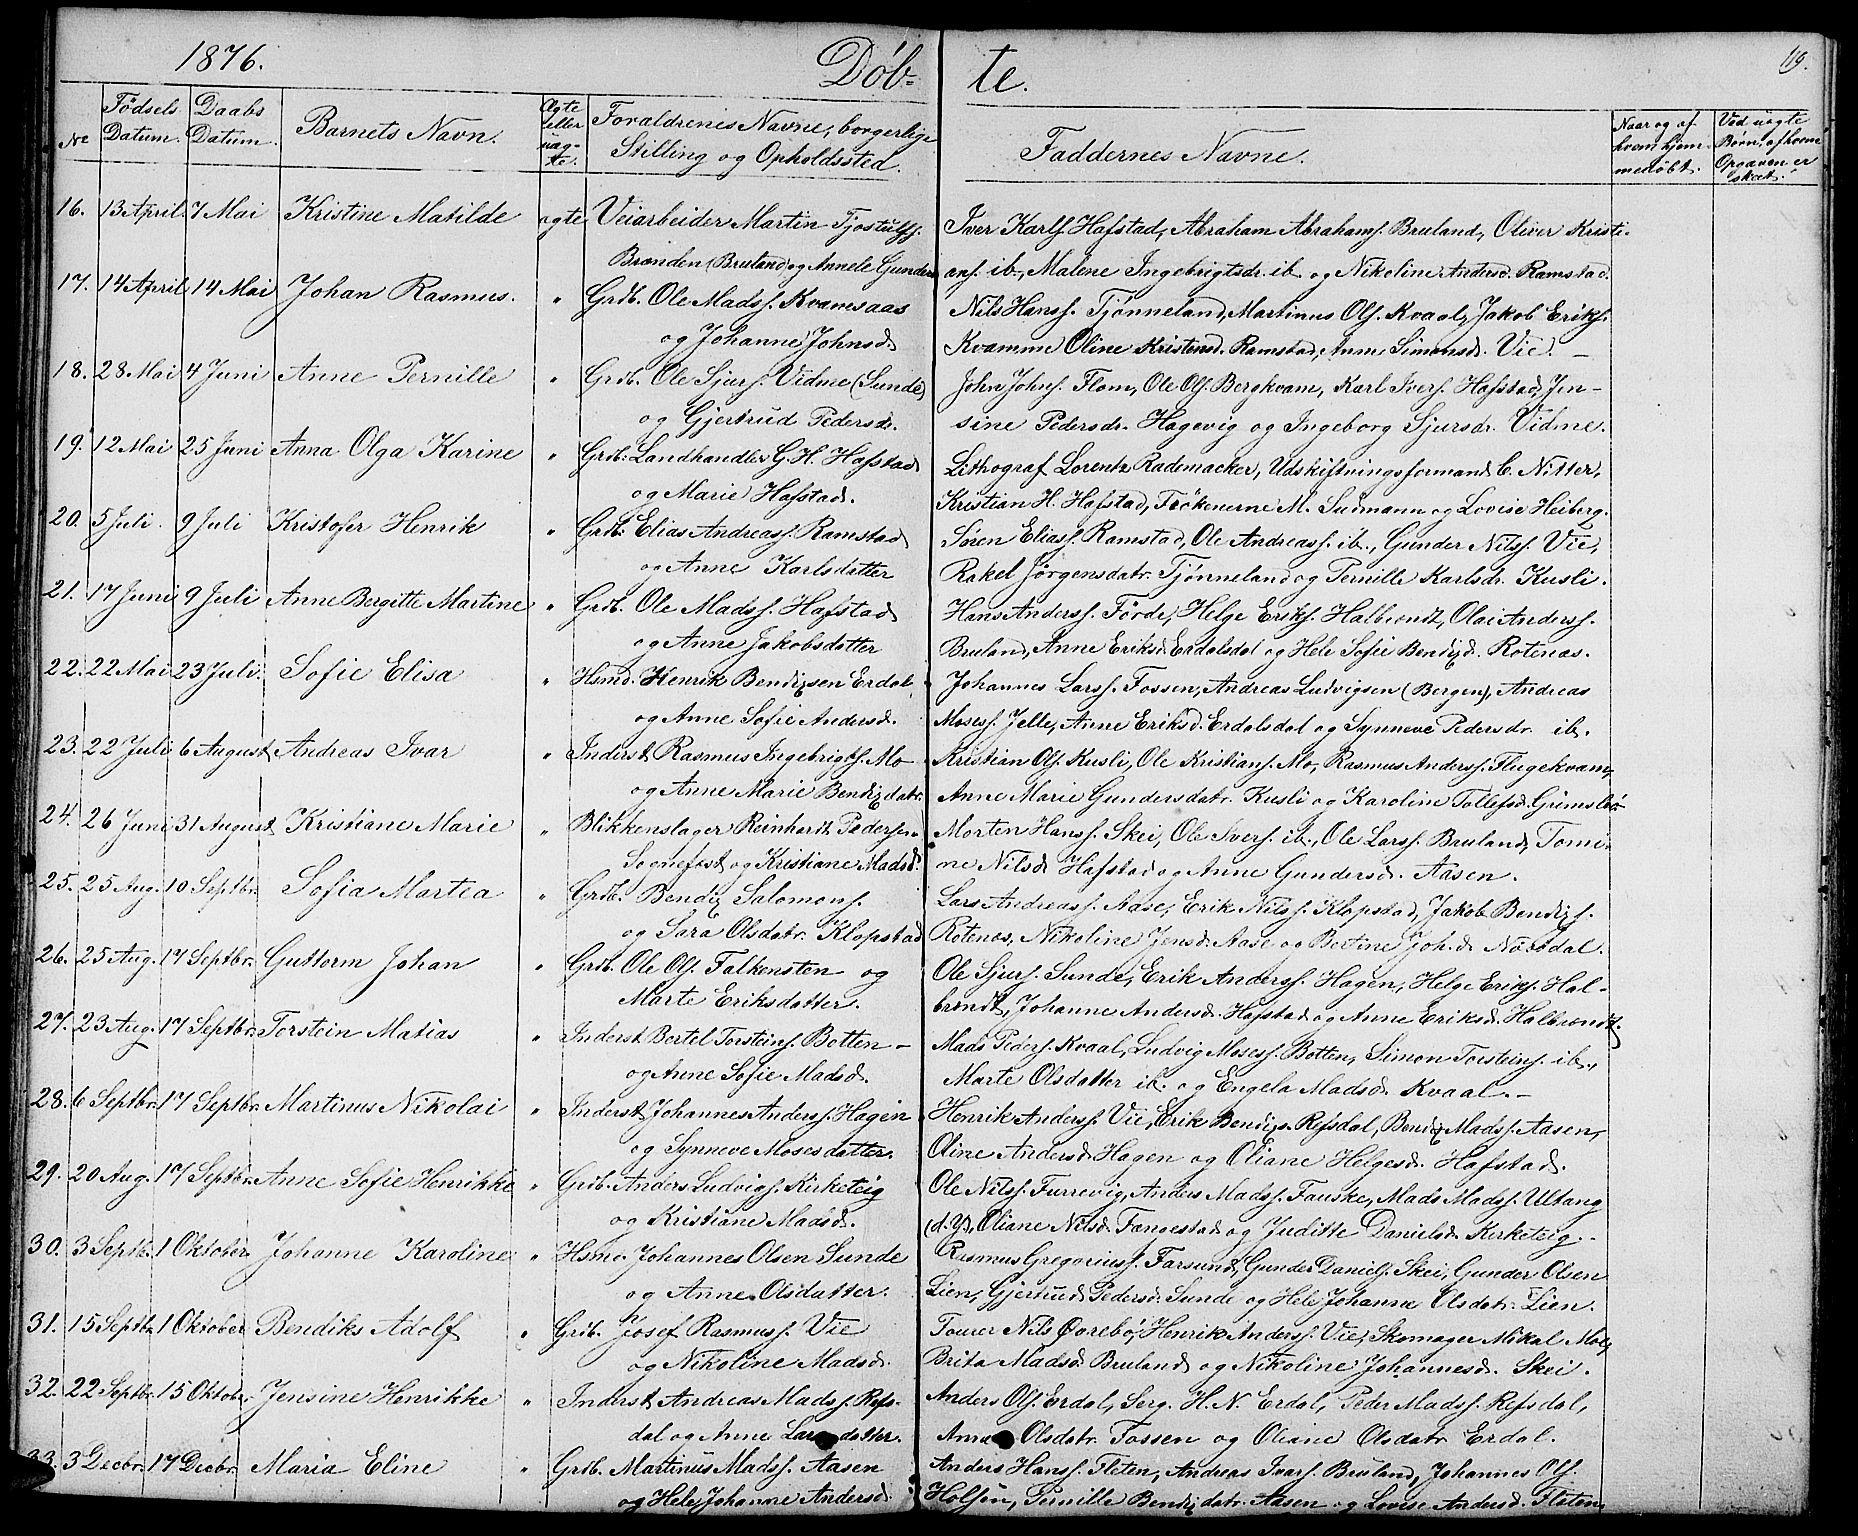 1876. Döb- te. 119.
No Födsels Datum. Daabs Datum. Barnets Navn. Ægte eller uæg- te. Forældrenes Navne, borgerlige Stilling og Opholdssted. Faddernes Navne. Naar og af hvem hjem- medöbt. Ved uægte Börn, af hvem Opgaven er skeet.
16. 13 April 7 Mai Kristine Matilde ægte Veiarbeider Martin Tjostulfs. Iver Karls. Hafstad, Abraham Abrahams. Bruland, Oliver Kristi-
Brænden (Bruland) og Annele Gunders ans. ib., Malene Ingebrigtsdr. ib. og Nikoline Andersd. Ramstad.
17. 14 April 14 Mai Johan Rasmus. " Grdb. Ole Madss. Kvamesaas Nils Hanss. Tjönneland, Martinus Ols. Kvaal, Jakob Eriks.
og Johanne Johnsd. Kvamme Oline Kristensd. Ramstad, Anne Simonsd. Vie. —
18. 28 Mai 4 Juni Anne Pernille " Grdb. Ole Sjurs. Vidme (Sunde) John Johns. Flom, Ole Ols. Bergkvam, Karl Ivers. Hafstad, Jen-
og Gjertrud Pedersdr. sine Pedersdr. Hagevig og Ingeborg Sjursdr. Vidme.
19. 12 Mai 25 Juni Anna Olga Karine " Grdb. Landhandler G. H. Hafstad Lithograf Lorentz Rademacker, Udskiftningsformand C. Nitter,
og Marie Hafstad. Kristian H. Hafstad, Frökenerne M. Sudmann og Lovise Heiberg.
20. 5 Juli. 9 Juli Kristofer Henrik " Grdb. Elias Andreass. Ramstad Sören Eliass. Ramstad, Ole Andreass. ib., Gunder Nilss. Vie,
og Anne Karlsdatter Rakel Jörgensdatr. Tjönneland og Pernille Karlsdr. Kusli.
21. 17 Juni 9 Juli Anne Bergitte Martine " Grdb. Ole Madss. Hafstad Hans Anderss. Förde, Helge Eriks. Halbrendt, Olai Anderss.
og Anne Jakobsdatter Bruland, Anne Eriksd. Erdalsdal og Hele Sofie Bendixd. Rotenæs.
22. 22 Mai 23 Juli. Sofie Elisa " Hsmd. Henrik Bendixsen Erdal, Johannes Larss. Fossen, Andreas Ludvigsen (Bergen), Andreas
og Anne Sofie Andersd. Mosess. Jelle, Anne Eriksd. Erdalsdal og Synneve Pedersdr. ib.
23. 22 Juli 6 August Andreas Ivar " Inderst Rasmus Ingebrigts. Mo Kristian Ols. Kusli, Ole Kristians. Mo, Rasmus Anderss. Flugekvam,
og Anne Marie Bendixdatr. Anne Marie Gundersdatr. Kusli og Karoline Tollefsd. Grimsbö
24. 26 Juni 31 August Kristiane Marie " Blikkenslager Reinhardt Pedersen Morten Hanss. Skei, Ole Ivers. ib., Ole Larss. Bruland, Tomi-
Sognefest og Kristiane Madsd. ne Nilsd. Hafstad og Anne Gundersd. Aasen.
25. 25 Aug. 10 Septbr. Sofia Martea " Grdb. Bendix Salomons. Lars Andreass. Aase, Erik Nilss. Klopstad, Jakob Bendixs.
og Sara Olsdatr. Klopstad Rotenæs, Nikoline Jensd. Aase og Bertine Joh.d. Næsdal.
26. 25 Aug. 17 Septbr. Guttorm Johan " Grdb. Ole Ols. Falkensten og Ole Sjurs. Sunde, Erik Anderss. Hagen, Helge Eriks. Hal-
Marte Eriksdatter. brendt, Johanne Andersd. Hafstad og Anne Eriksd. Halbrendt.
27. 23 Aug. 17 Septbr. Torstein Matias " Inderst Bertel Torsteins. Botten — Mads Peders. Kvaal, Ludvig Mosess. Botten, Simon Torsteins. ib.,
og Anne Sofie Madsd. Marte Olsdatter ib. og Engela Madsd. Kvaal. —
28. 6 Septbr. 17 Septbr. Martinus Nikolai " Inderst Johannes Anderss. Hagen Henrik Anderss. Vie, Erik Bendixs. Refsdal, Bendix Madss. Aasen,
og Synneve Mosesdatter. Oline Andersd. Hagen og Oliane Helgesd. Hafstad.
29. 20 Aug. 17 Septbr. Anne Sofie Henrikke " Grdb. Anders Ludvigs. Kirketeig Ole Nilss. Furrevig, Anders Madss. Fauske, Mads Madss. Ultang
og Kristiane Madsd. (d. Y), Oliane Nilsd. Fængestad og Juditte Danielsd. Kirketeig. -
30. 3 Septb. 1 Oktober Johanne Karoline " Hsm. Johannes Olsen Sunde Rasmus Gregoriuss. Farsund, Gunder Daniels. Skei, Gunder Olsen
og Anne Olsdatter. Lien, Gjertrud Pedersd. Sunde og Hele Johanne Olsdatr. Lien.
31. 15 Septbr. 1 Oktober Bendiks Adolf " Grdb. Josef Rasmuss. Vie Tourer Nils Övrebö, Henrik Anderss. Vie, Skomager Mikal Mo,
og Nikoline Madsd. Brita Madsd. Bruland og Nikoline Johannesd. Skei.
32. 22 Septbr. 15 Oktobr. Jensine Henrikke " Inderst Andreas Madss. Refs- Anders Ols. Erdal, Serg. H. N. Erdal, Peder Madss. Refsdal,
dal og Anne Larsdatter. Anna Olsdatr. Fossen og Oliane Olsdatr. Erdal.
33. 3 Decbr. 17 Decbr. Maria Eline " Grdb. Martinus Madss. Aasen Anders Hanss. Fleten, Andreas Ivars. Bruland, Johannes Ols.
og Hele Johanne Andersd. Holsen, Pernille Bendixdatr. Aasen og Lovise Andersd. Fleten.